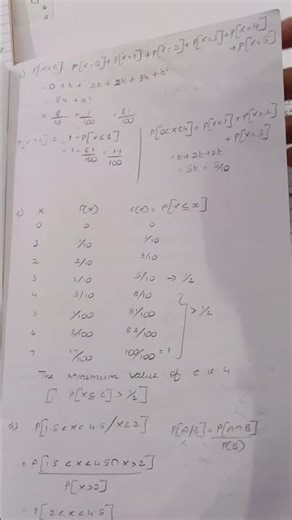 P[x<6] = P[x=0]+P[x=1]+P[x=2]+P[x=3]+P[x=4]
+P[x=5]
= 0+k+2k+2k+3k+k²
= 8k+k²
= 8/10 + 1/100 = 81/100
P[x≥6] = 1-P[x<6]
= 1-81/100 = 19/100
P[0<x<4] = P[x=1]+P[x=2]
+P[x=3]
= k+2k+2k
= 5k = 5/10
c) x P(x) F(x) = P[x≤x]
0 0 0
1 1/10 1/10
2 2/10 3/10
3 2/10 5/10 → 1/2
4 3/10 8/10
5 1/100 81/100 > 1/2
6 2/100 83/100
7 17/100 100/100 = 1
The minimum value of c is 4
[∵ P[x≤c] > 1/2]
d) P[1.5<x<4.5/x>2] P[A/B] = P[A∩B]
P(B)
= P[1.5<x<4.5∩x>2]
P[x>2]
= P[2<x<4.5]